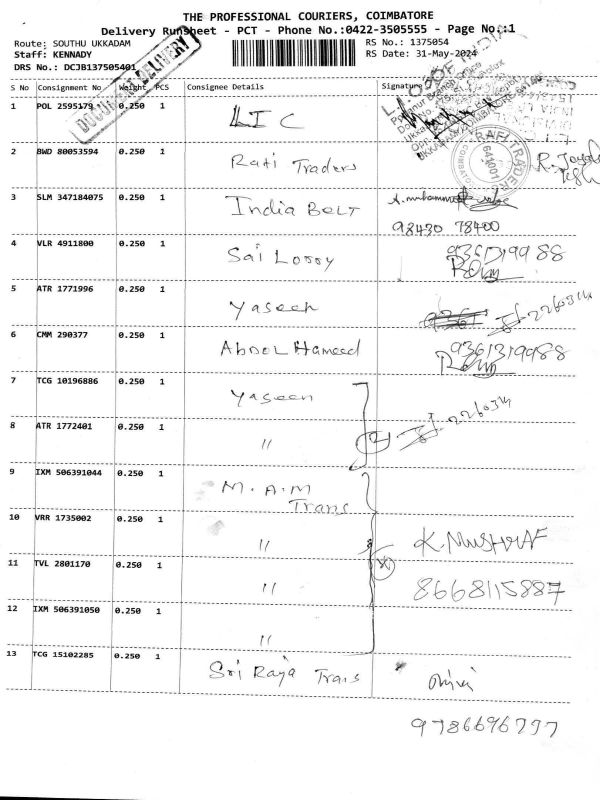 THE PROFESSIONAL COURIERS, COIMBATORE
Delivery Runsheet - PCT - Phone No.:0422-3505555 - Page No.:1
Route: SOUTHU UKKADAM RS No.: 1375054
Staff: KENNADY RS Date: 31-May-2024
DRS No.: DCJB137505401
DOCUMENT DELIVERY
S No Consignment No Weight PCS Consignee Details Signature
1 POL 2595179 0.250 1 LIC
2 BWD 80053594 0.250 1 Rafi Traders
RAFI TRADERS
641001
3 SLM 347184075 0.250 1 India BELT
98430 78400
4 VLR 4911800 0.250 1 Sai Lorry
5 ATR 1771996 0.250 1 Yaseen
6 CMM 290377 0.250 1 Abdul Hameed 9361319988
7 TCG 10196886 0.250 1 Yaseen
8 ATR 1772401 0.250 1 "
9 IXM 506391044 0.250 1 M.A.M Trans
10 VRR 1735002 0.250 1 "
11 TVL 2801170 0.250 1 " 8668115887
12 IXM 506391050 0.250 1 "
13 TCG 15102285 0.250 1 Sri Raja Trans
9786696777